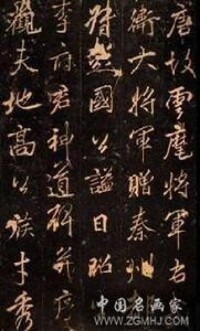 唐故雲麾將軍右
衛大將軍贈秦州都
督彭國公謚曰昭
李府君神道碑并序
觀夫地高公族才秀
中国名画家
WWW.ZGMHJ.COM